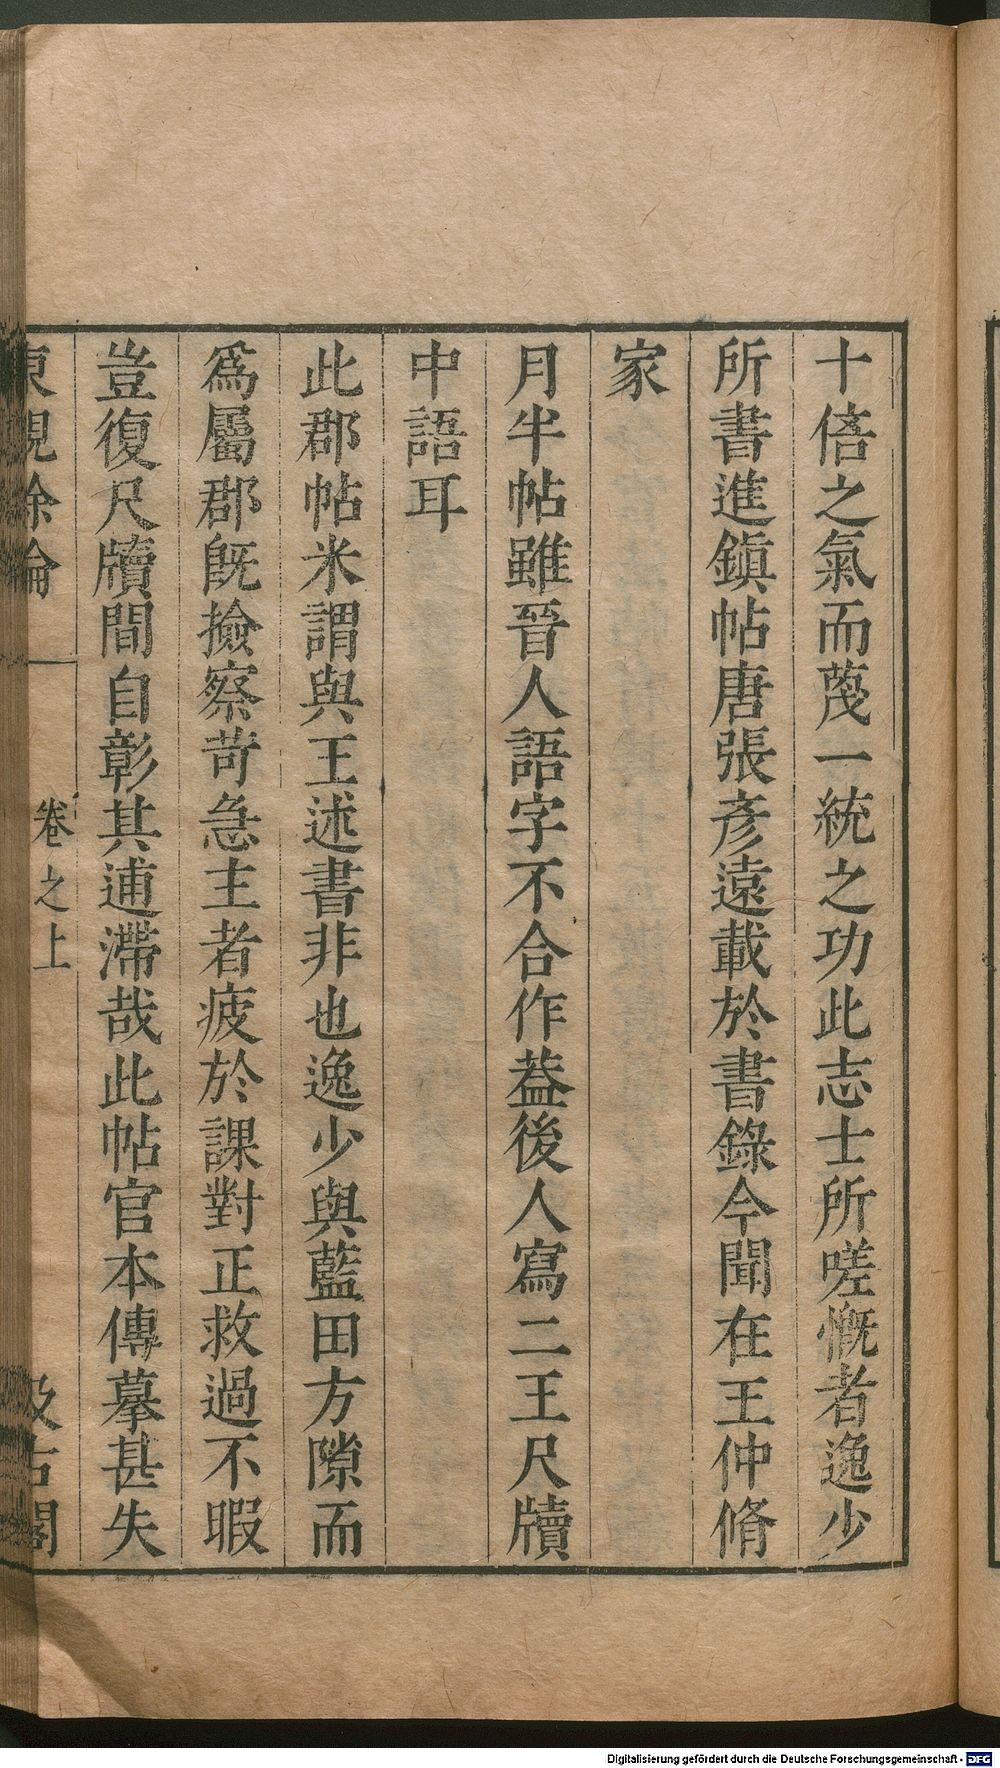 十倍之氣而蔑一統之功此志士所嗟慨者逸少
所書進鎮帖唐張彥遠載於書錄今聞在王仲脩
家
月半帖雖晉人語字不合作葢後人寫二王尺牘
中語耳
此郡帖米謂與王述書非也逸少與藍田方隙而
爲屬郡旣撿察苛急主者疲於課對正救過不暇
豈復尺牘間自彰其逋滯哉此帖官本傳摹甚失
東觀餘論
卷之上
汲古閣
Digitalisierung gefördert durch die Deutsche Forschungsgemeinschaft - DFG